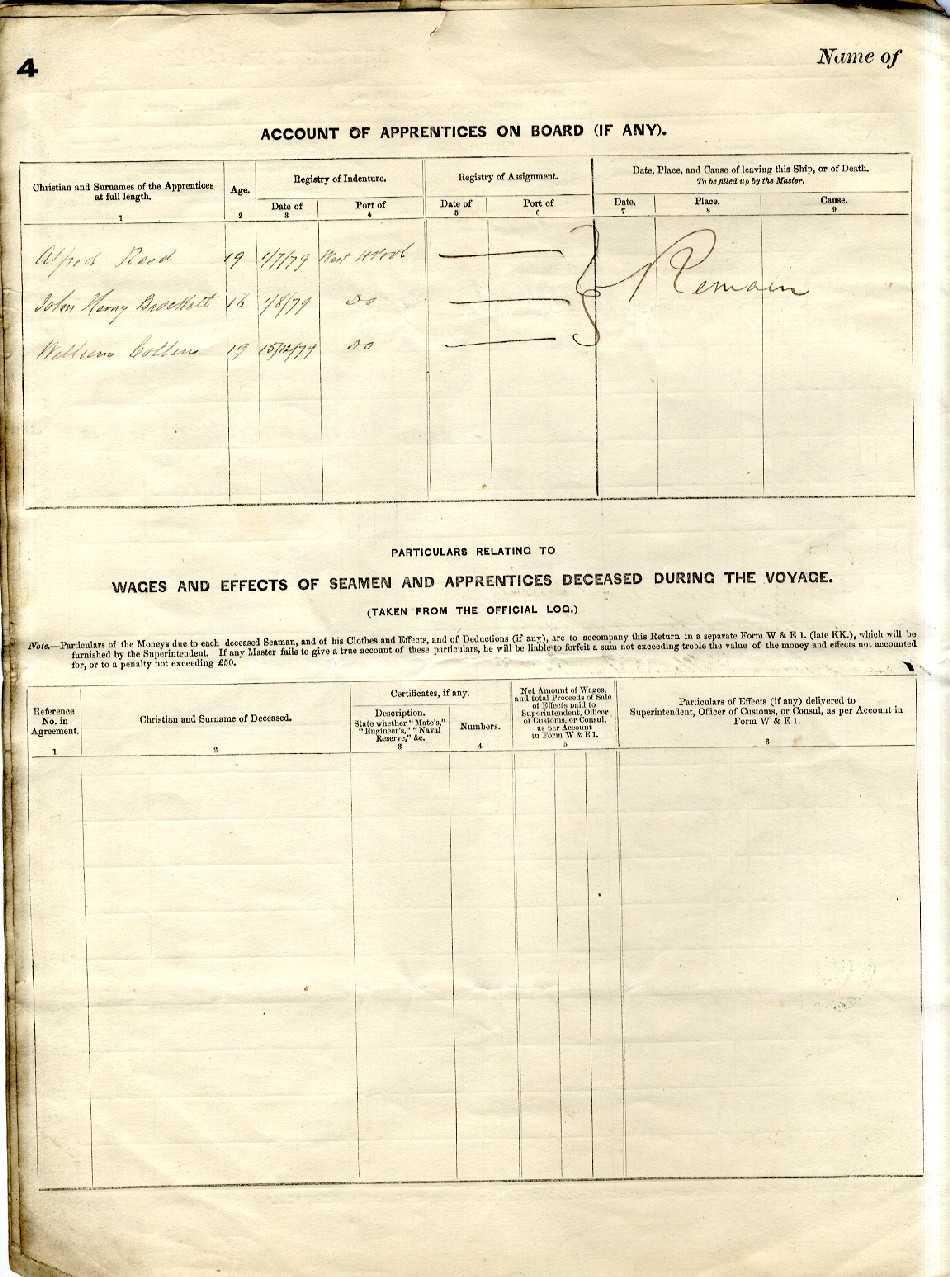 4
Name of
ACCOUNT OF APPRENTICES ON BOARD (IF ANY).
Christian and Surnames of the Apprentices at full length.
1
Age.
2
Registry of Indenture.
Date of
3
Port of
4
Registry of Assignment.
Date of
5
Port of
6
Date, Place, and Cause of leaving this Ship, or of Death.
To be filled up by the Master.
Date.
7
Place.
8
Cause.
9
Alfred Reed 19 1/7/79 West H'Pool
John Henry Brockett 18 1/8/79 Do
William Collins 19 15/12/79 Do
Remain
PARTICULARS RELATING TO
WAGES AND EFFECTS OF SEAMEN AND APPRENTICES DECEASED DURING THE VOYAGE.
(TAKEN FROM THE OFFICIAL LOG.)
Note.—Particulars of the Moneys due to each deceased Seaman, and of his Clothes and Effects, and of Deductions (if any), are to accompany this Return in a separate Form W & E 1. (late KK.), which will be
furnished by the Superintendent. If any Master fails to give a true account of these particulars, he will be liable to forfeit a sum not exceeding treble the value of the money and effects not accounted
for, or to a penalty not exceeding £50.
Reference
No. in
Agreement.
1
Christian and Surname of Deceased.
2
Certificates, if any.
Description.
State whether "Mate's,"
"Engineer's," "Naval
Reserve," &c.
3
Numbers.
4
Net Amount of Wages,
and total Proceeds of Sale
of Effects paid to
Superintendent, Officer
of Customs, or Consul,
as per Account
in Form W & E 1.
5
Particulars of Effects (if any) delivered to
Superintendent, Officer of Customs, or Consul, as per Account in
Form W & E 1.
6